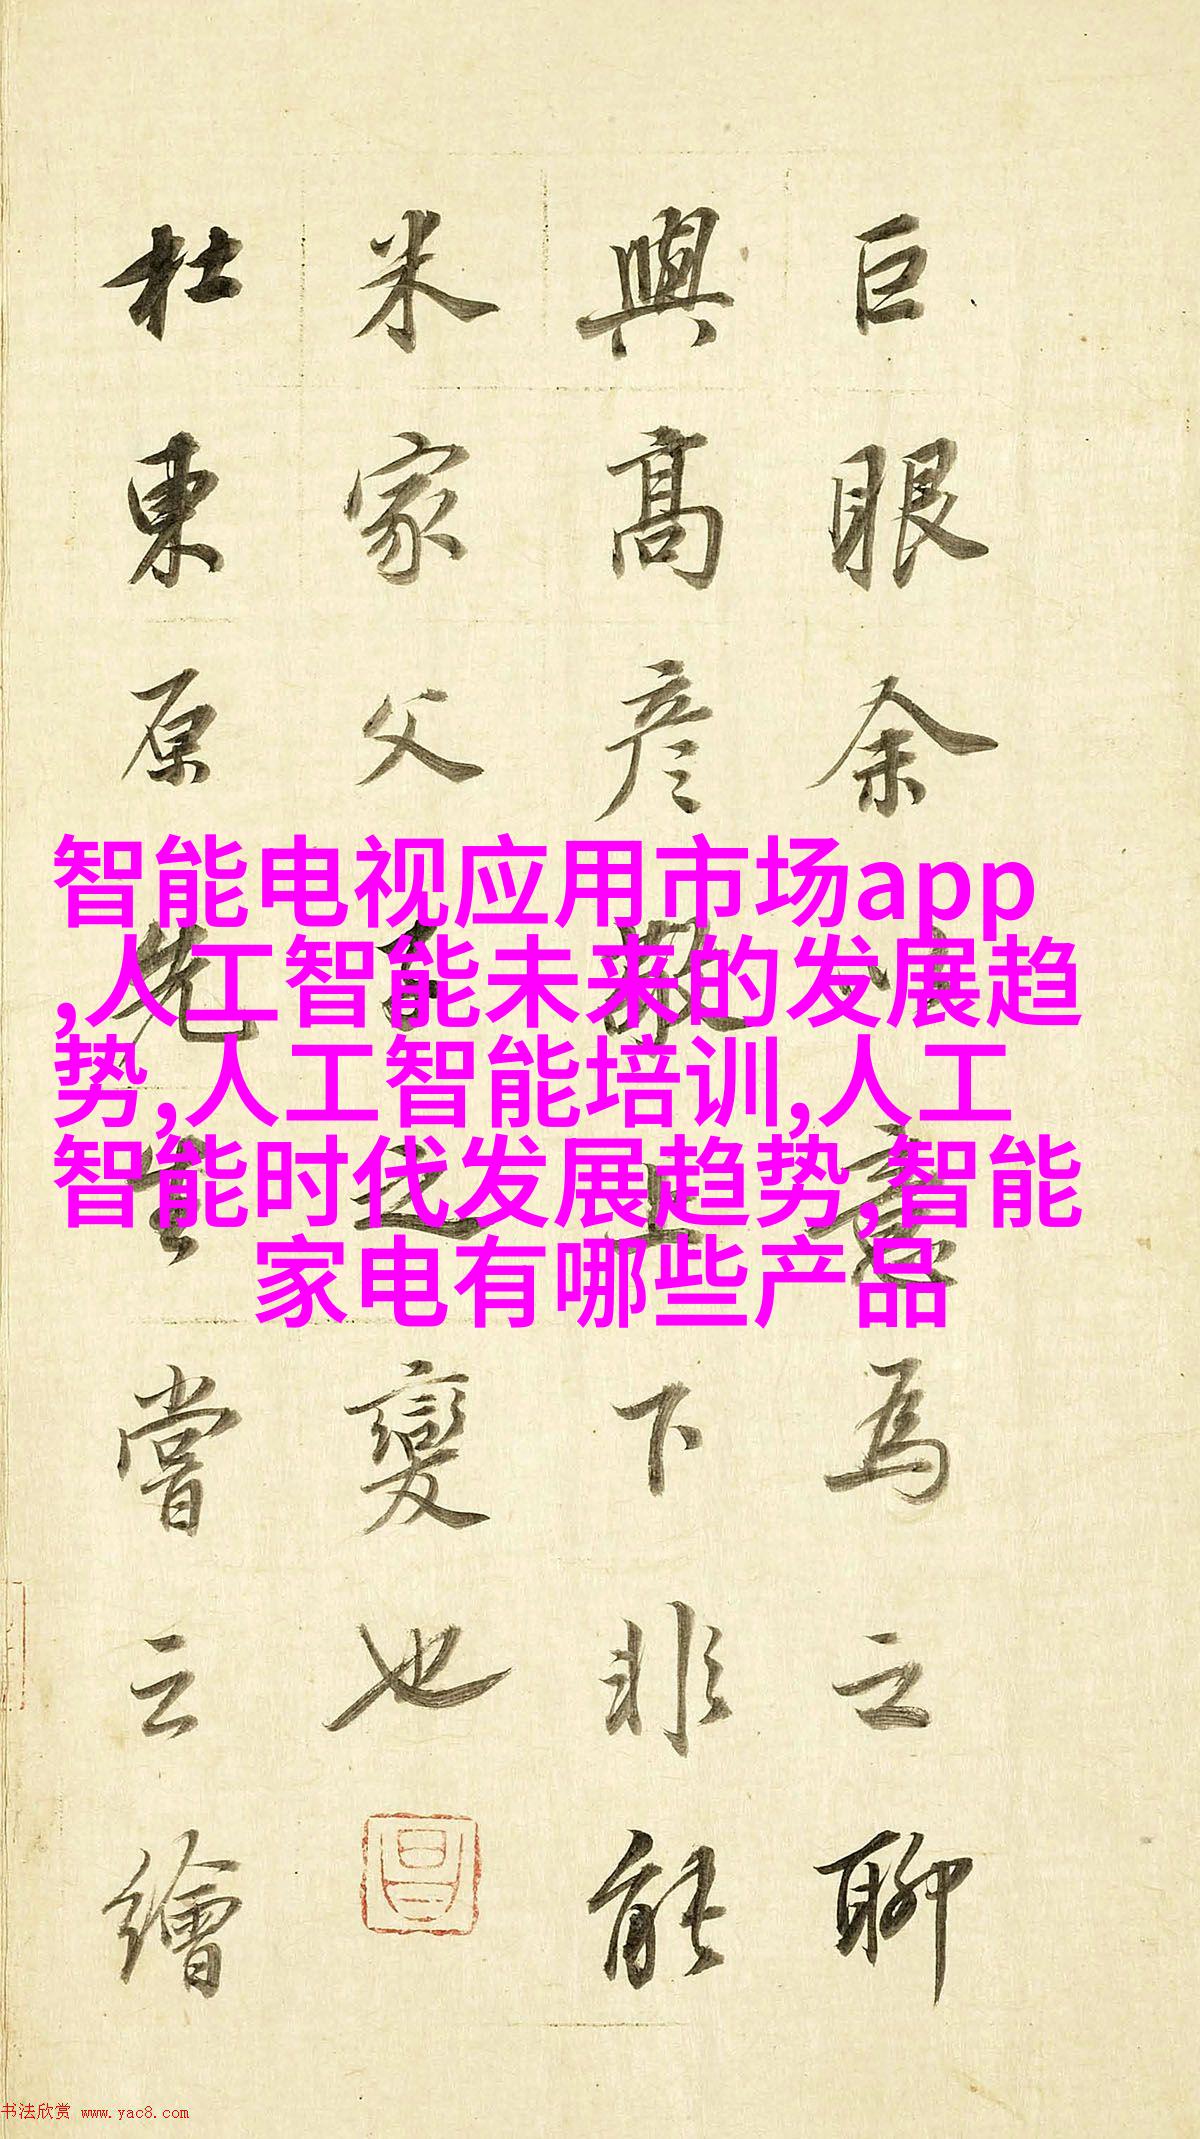 巨眼余意為之聊
與高彦敬上下非能
米家父子之變也
杜東原先生嘗云繪
智能电视应用市场app
,人工智能未来的发展趋
势,人工智能培训,人工
智能时代发展趋势,智能
家电有哪些产品
书法欣赏 www.yac8.com